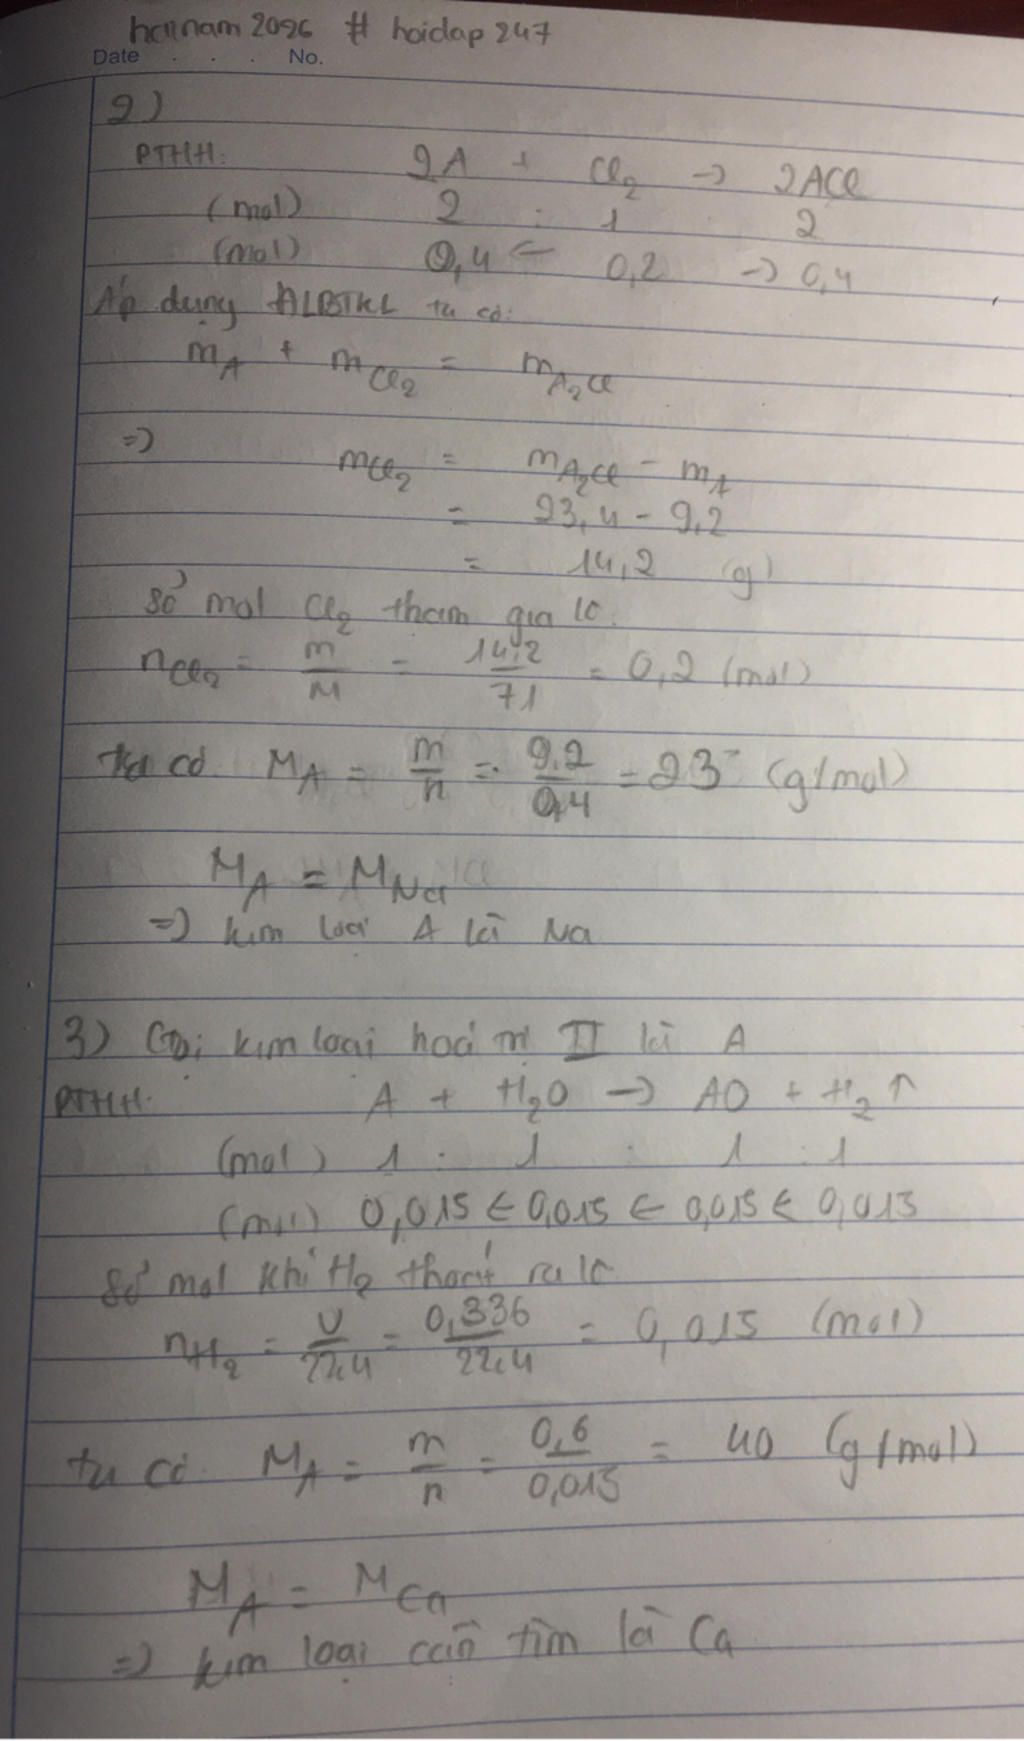 hainam2096 # hoidap247
Date . . . No.
2)
PTHH: 2A + Cl₂ → 2ACl
(mol) 2 : 1 2
(mol) 0,4 ← 0,2 → 0,4
Áp dụng ĐLBTKL ta có:
m_A + m_Cl₂ = m_A₂Cl
=> m_Cl₂ = m_A₂Cl - m_A
= 23,4 - 9,2
= 14,2 (g)
Số mol Cl₂ tham gia là:
n_Cl₂ = m/M = 14,2/71 = 0,2 (mol)
ta có M_A = m/n = 9,2/0,4 = 23 (g/mol)
M_A = M_Na
=> kim loại A là Na
3) Gọi kim loại hoá trị II là A
PTHH: A + H₂O → AO + H₂↑
(mol) 1 : 1 : 1 : 1
(mol) 0,015 ← 0,015 ← 0,015 ← 0,015
Số mol khí H₂ thoát ra là
n_H₂ = V/22,4 = 0,336/22,4 = 0,015 (mol)
ta có M_A = m/n = 0,6/0,015 = 40 (g/mol)
M_A = M_Ca
=> kim loại cần tìm là Ca